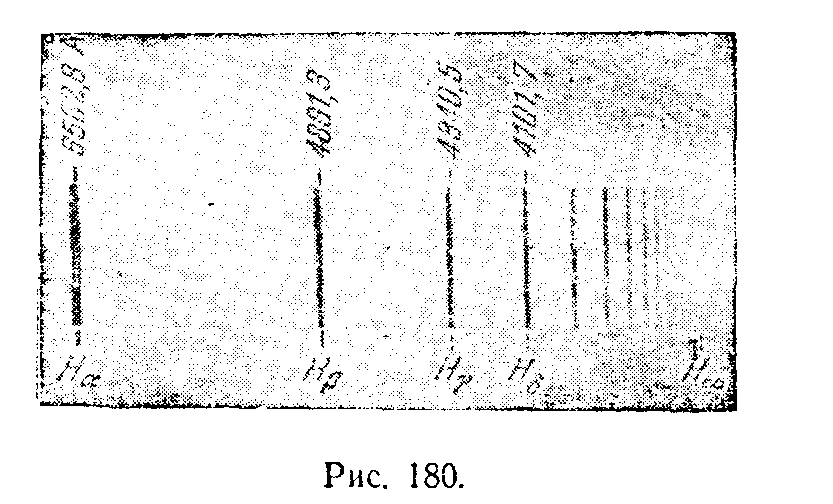 6562,8 Å
4861,3
4340,5
4101,7
Hα
Hβ
Hγ
Hδ
H∞
Рис. 180.